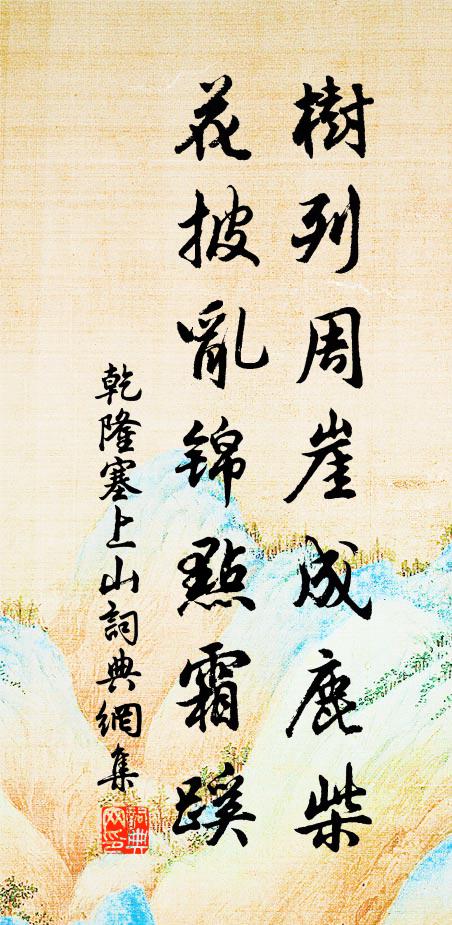 樹列周崖成鹿柴
花披亂錦點霜蹊
乾隆塞上山詞典網集
詞典網印